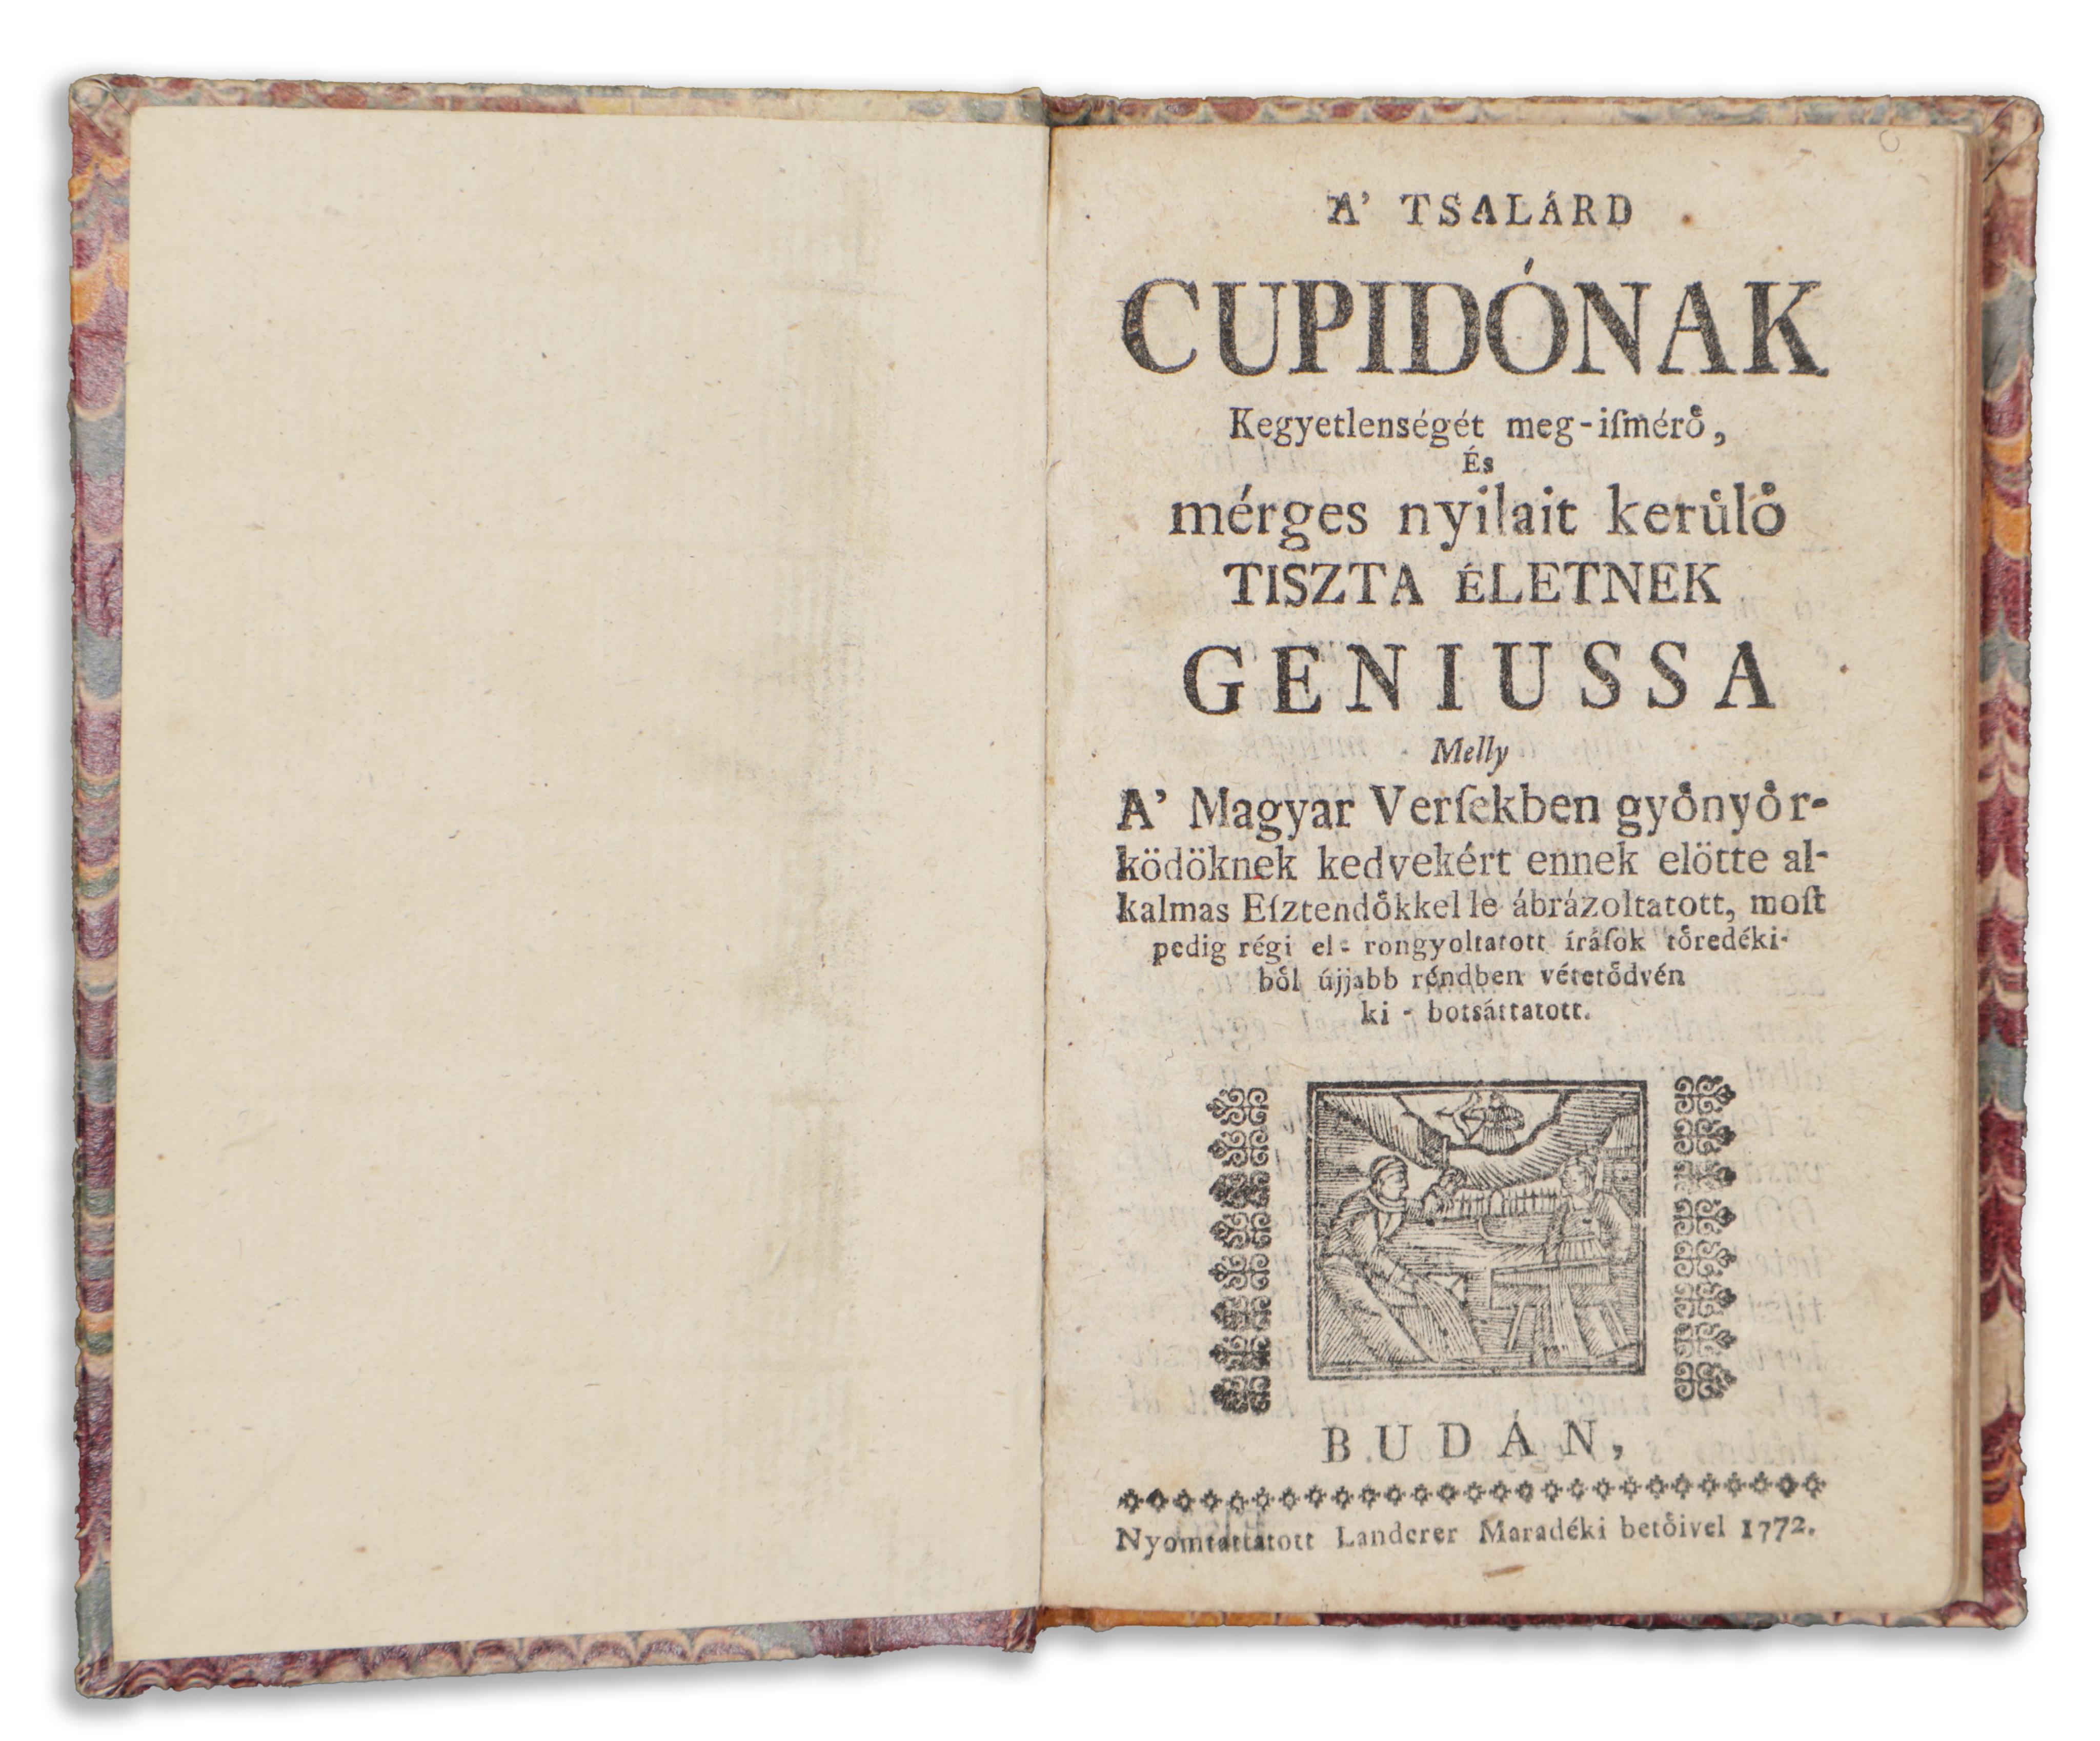 A' TSALÁRD
CUPIDÓNAK
Kegyetlenségét meg-iſmérő,
És
mérges nyilait kerůlő
TISZTA ÉLETNEK
GENIUSSA
Melly
A' Magyar Verſekben gyönyör-
ködöknek kedvekért ennek elötte al-
kalmas Eſztendőkkel le ábrázoltatott, moſt
pedig régi el-rongyoltatott íráſok töredéki-
ből újjabb réndben vétetődvén
ki-botsáttatott.
BUDÁN,
Nyomtattatott Landerer Maradéki betőivel 1772.